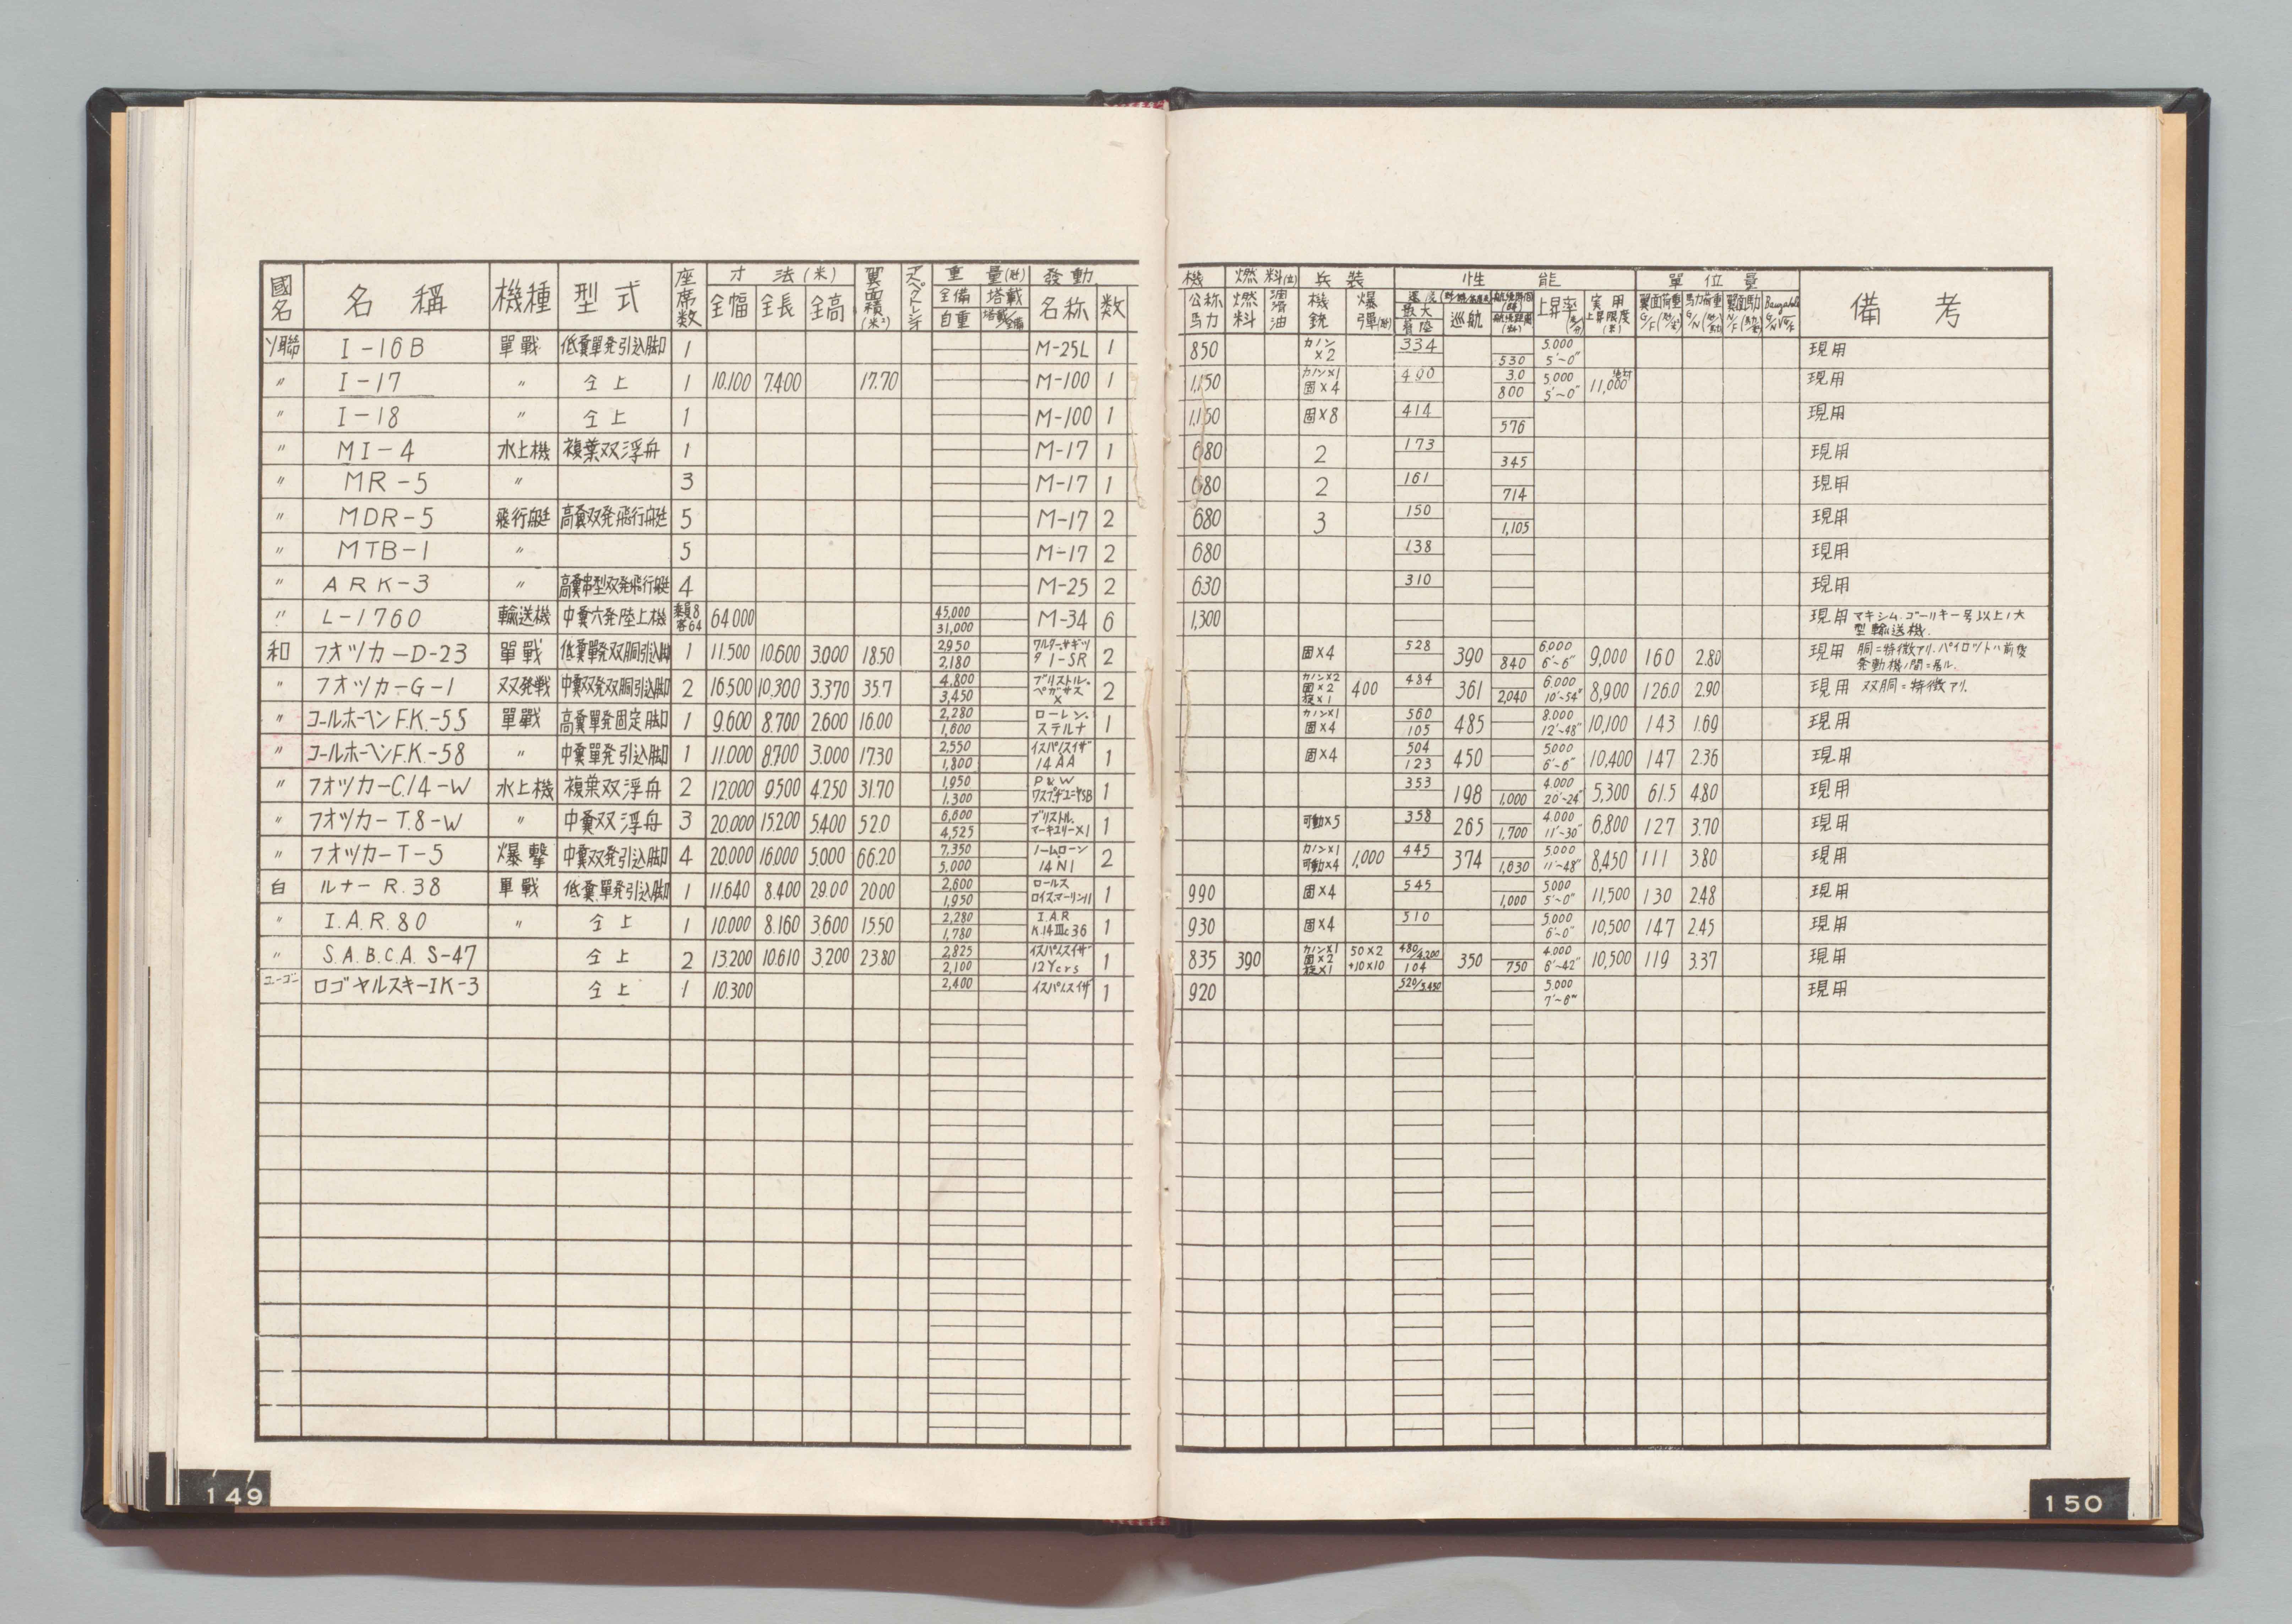 國名 名稱 機種 型式 座席数 寸法(米) 全幅 全長 全高 翼面積(米²) アスペクトレシオ 重量(瓩) 全備 自重 搭載 搭載/全備 發動 名称 数
ソ聯 I-16B 單戰 低翼單発引込脚 1 M-25L 1
〃 I-17 〃 仝上 1 10.100 7.400 17.70 M-100 1
〃 I-18 〃 仝上 1 M-100 1
〃 MI-4 水上機 複葉双浮舟 1 M-17 1
〃 MR-5 〃 3 M-17 1
〃 MDR-5 飛行艇 高翼双発飛行艇 5 M-17 2
〃 MTB-1 〃 5 M-17 2
〃 ARK-3 〃 高翼串型双発飛行艇 4 M-25 2
〃 L-1760 輸送機 中翼六発陸上機 乗員8 客64 64.000 45,000 31,000 M-34 6
和 フオツカーD-23 單戰 低翼單発双胴引込脚 1 11.500 10.600 3.000 18.50 2,950 2,180 ワルターサギツタ I-SR 2
〃 フオツカーG-1 双発戦 中翼双発双胴引込脚 2 16.500 10.300 3.370 35.7 4,800 3,450 ブリストル・ペガサスX 2
〃 コールホーヘンF.K.-55 單戰 高翼單発固定脚 1 9.600 8.700 2.600 16.00 2,280 1,600 ローレン・ステルナ 1
〃 コールホーヘンF.K.-58 〃 中翼單発引込脚 1 11.000 8.700 3.000 17.30 2,550 1,800 イスパノスイザ 14AA 1
〃 フオツカーC.14-W 水上機 複葉双浮舟 2 12.000 9.500 4.250 31.70 1,950 1,300 P&W 1
〃 フオツカーT.8-W 〃 中翼双浮舟 3 20.000 15.200 5.400 52.0 6,600 4,525 ブリストル・マーキュリーXI 1
〃 フオツカーT-5 爆撃 中翼双発引込脚 4 20.000 16.000 5.000 66.20 7,350 5,000 ノームローン 14N1 2
白 ルナー R.38 單戰 低翼單発引込脚 1 11.640 8.400 29.00 20.00 2,600 1,950 ロールスロイスマーリンII 1
〃 I.A.R.80 〃 仝上 1 10.000 8.160 3.600 15.50 2,280 1,780 I.A.R K.14IIIc36 1
〃 S.A.B.C.A. S-47 仝上 2 13.200 10.610 3.200 23.80 2,825 2,100 イスパノスイザ 12Ycrs 1
ユーゴー ロゴヤルスキーIK-3 仝上 1 10.300 2,400 イスパノスイザ 1
149
機 公称馬力 燃料(立) 燃料 潤滑油 兵装 機銃 爆弾(瓩) 性能 最大 着陸 巡航 上昇率 実用上昇限度(米) 單位量 翼面荷重 馬力荷重 翼面馬力 備考
850 カノン×2 334 530 5.000 5'~0" 現用
1,150 カノン×1 固×4 490 3.0 800 5.000 5'~0" 11,000 現用
1,150 固×8 414 576 現用
680 2 173 345 現用
680 2 161 714 現用
680 3 150 1,105 現用
680 138 現用
630 310 現用
1,300 現用 マキシム.ゴーリキー号以上ノ大型輸送機.
固×4 528 390 840 6,000 6'~6" 9,000 160 2.80 現用 胴ニ特徴アリ. パイロットハ前後発動機ノ間ニ居ル.
カノン×2 固×2 旋×1 400 484 361 2,040 6.000 10'~54" 8,900 126.0 2.90 現用 双胴ニ特徴アリ.
カノン×1 固×4 560 105 485 8.000 12'~48" 10,100 143 1.69 現用
固×4 504 123 450 5.000 6'~6" 10,400 147 2.36 現用
353 198 1,000 4.000 20'~24" 5,300 61.5 4.80 現用
可動×5 358 265 1,700 4.000 11'~30" 6,800 127 3.70 現用
カノン×1 可動×4 1,000 445 374 1,630 5.000 11'~48" 8,450 111 3.80 現用
990 固×4 545 1,000 5.000 5'~0" 11,500 130 2.48 現用
930 固×4 510 5.000 6'~0" 10,500 147 2.45 現用
835 390 カノン×1 固×2 旋×1 50×2 +10×10 480/4.200 104 350 750 4.000 6'~42" 10,500 119 3.37 現用
920 520/5.450 5.000 7'~6" 現用
150